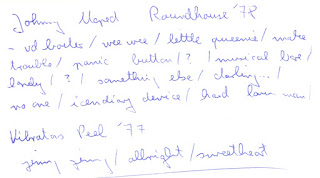 Johnny Moped Roundhouse '78
- vd boiles / wee wee / little queenie / make
trouble / panic button / ? / musical box /
lonely / ? / something else / darling... /
no one / icendiary device / hard lovin man /
Vibrators Peel '77
jenny jenny / allright / sweetheart